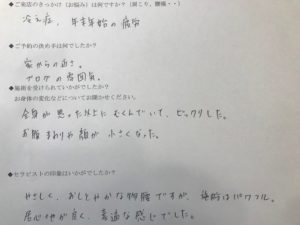 ◆ご来店のきっかけ（お悩み）は何ですか？（肩こり、腰痛・・）
冷え症，年末年始の疲労
◆ご予約の決め手は何でしたか？
家からの近さ。
ブログの雰囲気。
◆施術を受けられていかがでしたか？
お身体の変化などについてお聞かせください。
全身が思った以上にむくんでいて、ビックリした。
お腹まわりや顔が小さくなった。
◆セラピストの印象はいかがでしたか？
やさしく、おしとやかな物腰ですが、施術はパワフル。
居心地が良く、素適な感じでした。